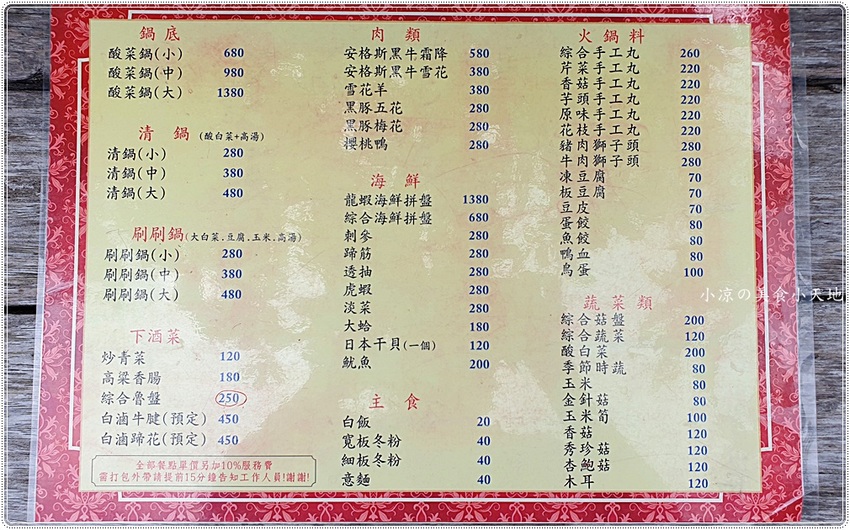 鍋底
酸菜鍋(小) 680
酸菜鍋(中) 980
酸菜鍋(大) 1380
清鍋 (酸白菜+高湯)
清鍋(小) 280
清鍋(中) 380
清鍋(大) 480
刷刷鍋(大白菜.豆腐.玉米.高湯)
刷刷鍋(小) 280
刷刷鍋(中) 380
刷刷鍋(大) 480
下酒菜
炒青菜 120
高梁香腸 180
綜合魯盤 250
白滷牛腱(預定) 450
白滷蹄花(預定) 450
全部餐點單價另加10%服務費
需打包外帶請提前15分鐘告知工作人員!謝謝!
肉類
安格斯黑牛霜降 580
安格斯黑牛雪花 380
雪花羊 380
黑豚五花 280
黑豚梅花 280
櫻桃鴨 280
海鮮
龍蝦海鮮拼盤 1380
綜合海鮮拼盤 680
刺參 280
蹄筋 280
透抽 280
虎蝦 280
淡菜 280
大蛤 180
日本干貝(一個) 120
魷魚 200
主食
白飯 20
寬板冬粉 40
細板冬粉 40
意麵 40
火鍋料
綜合手工丸 260
芹菜手工丸 220
香菇手工丸 220
芋頭手工丸 220
原味手工丸 220
花枝手工丸 220
豬肉獅子頭 280
牛肉獅子頭 280
凍豆腐 70
板豆腐 70
豆皮 70
蛋餃 80
魚餃 80
鴨血 80
鳥蛋 100
蔬菜類
綜合菇盤 200
綜合蔬菜 120
酸白菜 200
季節時蔬 80
玉米 80
金針菇 80
玉米筍 100
香菇 120
秀珍菇 120
杏鮑菇 120
木耳 120
小涼の美食小天地